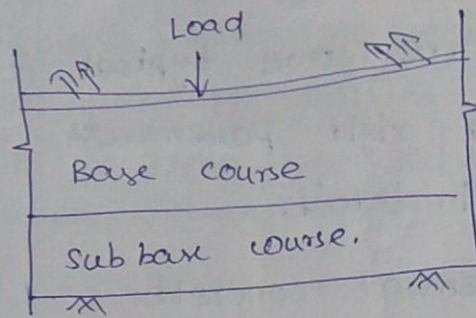 Load
Base course
sub base course.